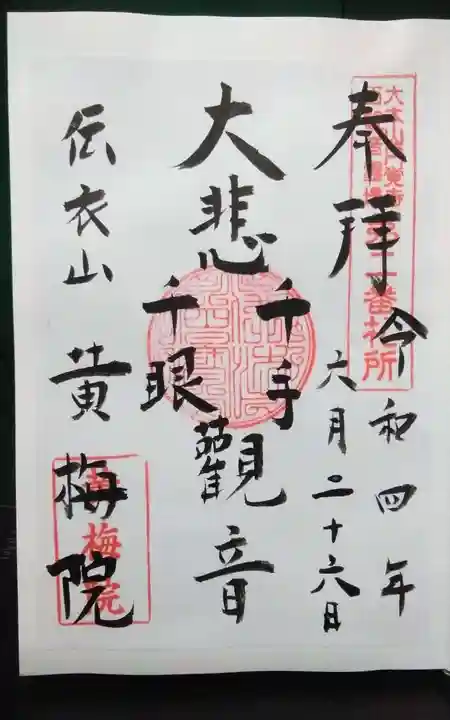 奉拝
令和四年
六月二十六日
大悲
千手
千眼
觀音
伝衣山
黄梅院
黄梅院